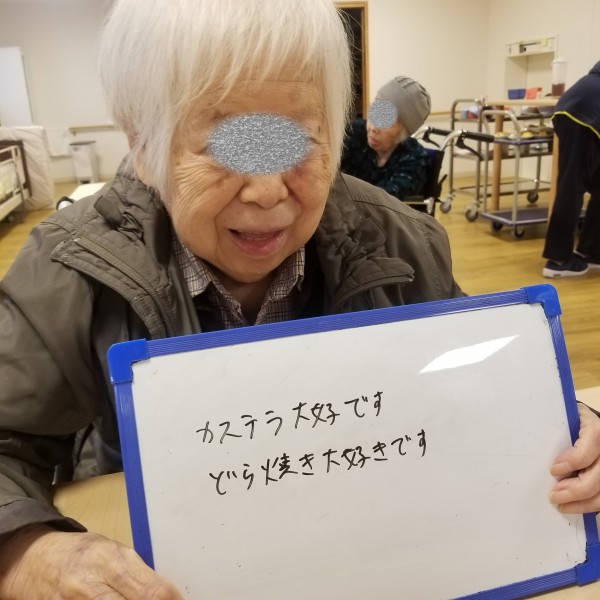 カステラ大好です
どら焼き大好きです